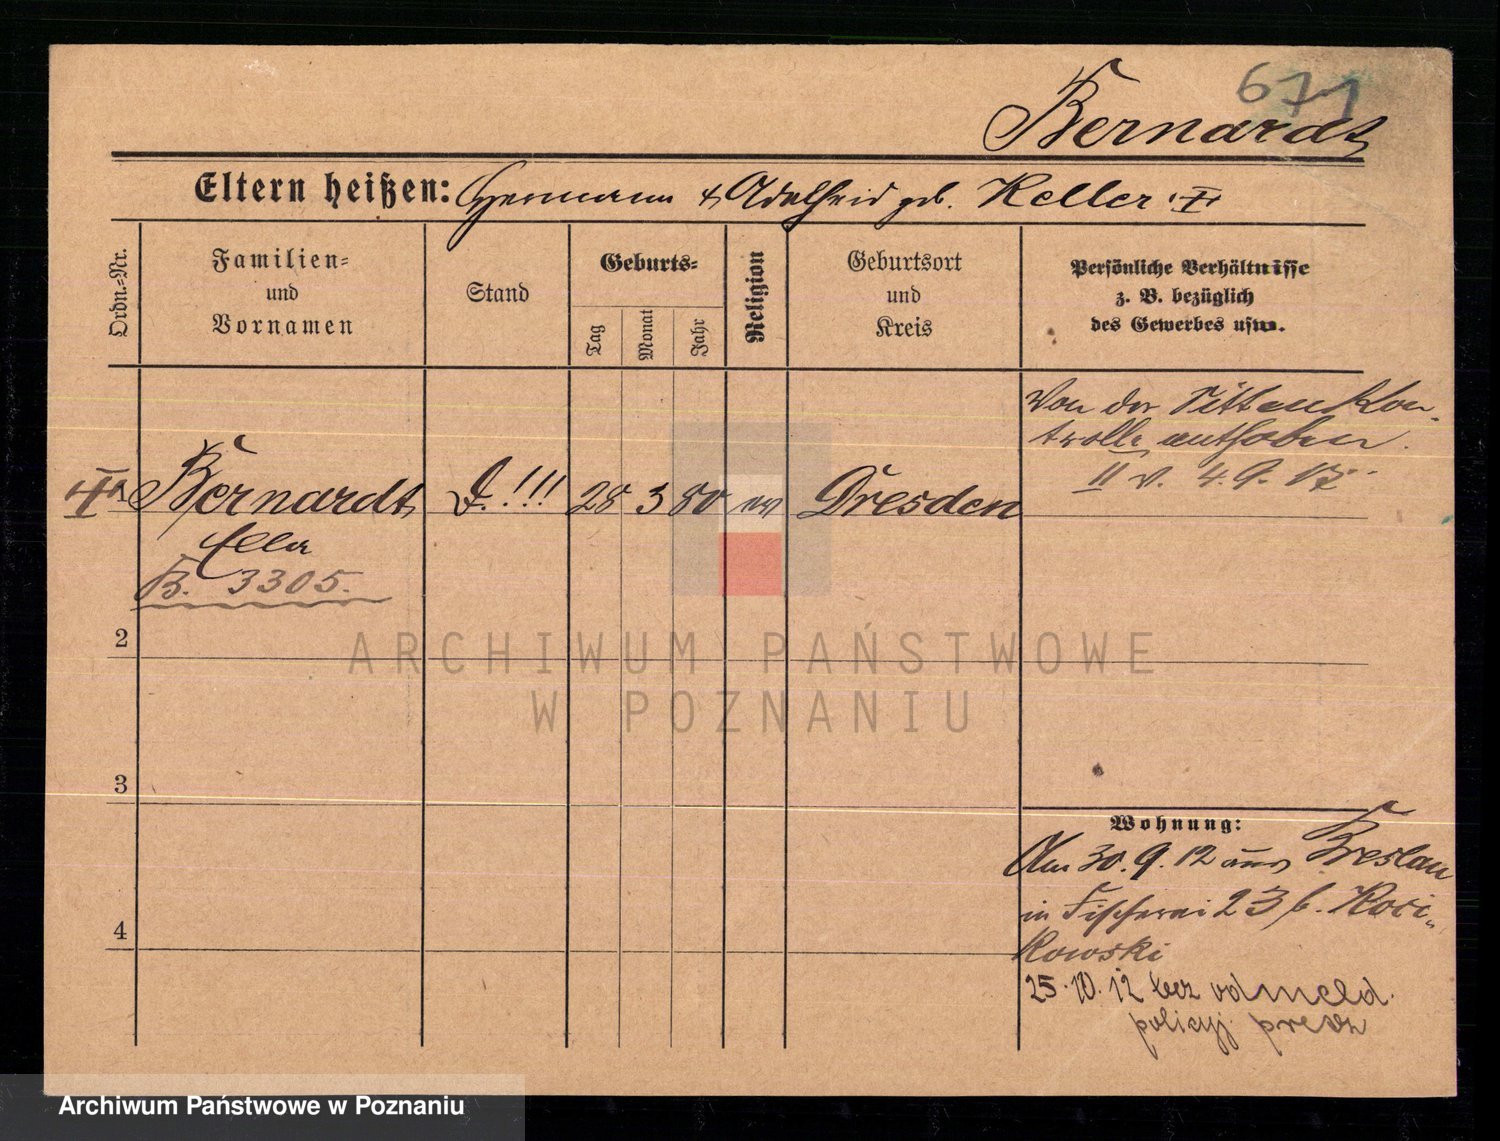 671
Bernardt
Eltern heißen: Hermann & Adelheid geb. Keller
Ordn.-Nr.
Familien-
und
Vornamen
Stand
Geburts-
Tag
Monat
Jahr
Religion
Geburtsort
und
Kreis
Persönliche Verhältnisse
z. B. bezüglich
des Gewerbes usw.
Von der Sittenkon-
trolle enthoben.
II v. 4.9.12
1 Bernardt D. !!! 28 3 80 ev Dresden
Ella
B. 3305.
2
ARCHIWUM PAŃSTWOWE
W POZNANIU
3
Wohnung:
Am 30.9.12 aus Breslau
in Fischerei 23 b. Koci-
kowski
4
25.10.12 bez odmeld.
policyj.
Archiwum Państwowe w Poznaniu